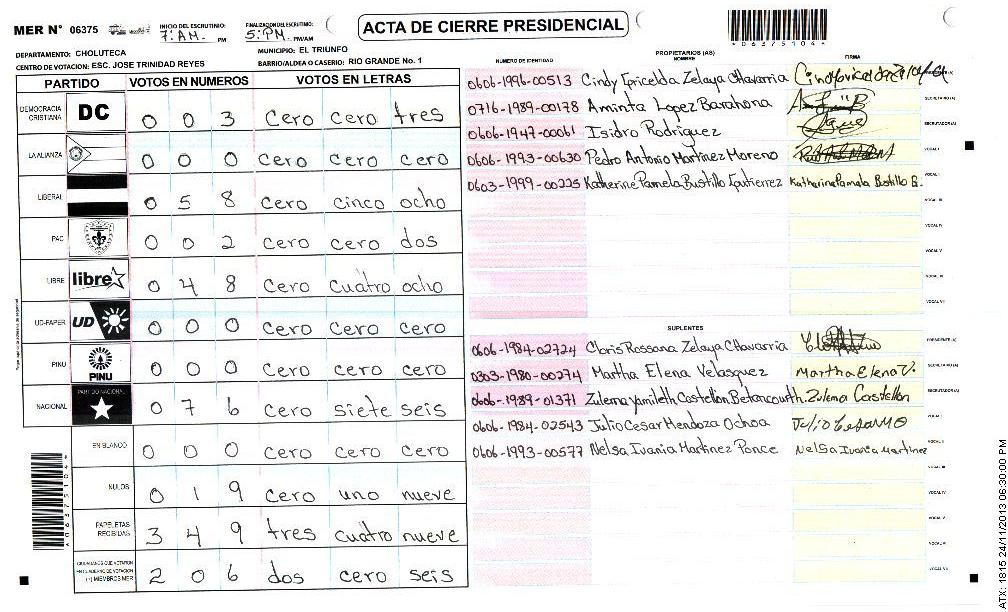 MER N° 06375
INICIO DEL ESCRUTINIO:
7:AM. PM
FINALIZACION ESCRUTINIO:
5:PM. PM/AM
ACTA DE CIERRE PRESIDENCIAL
*06375104*
DEPARTAMENTO: CHOLUTECA
MUNICIPIO: EL TRIUNFO
CENTRO DE VOTACION: ESC. JOSE TRINIDAD REYES
BARRIO/ALDEA O CASERIO: RIO GRANDE No. 1
PARTIDO VOTOS EN NUMEROS VOTOS EN LETRAS
DEMOCRACIA CRISTIANA DC 0 0 3 cero cero tres
LA ALIANZA 0 0 0 cero cero cero
LIBERAL 0 5 8 cero cinco ocho
PAC 0 0 2 cero cero dos
LIBRE libre 0 4 8 cero cuatro ocho
UD-FAPER UD 0 0 0 cero cero cero
PINU PINU 0 0 0 cero cero cero
NACIONAL PARTIDO NACIONAL 0 7 6 cero siete seis
EN BLANCO 0 0 0 cero cero cero
NULOS 0 1 9 cero uno nueve
PAPELETAS RECIBIDAS 3 4 9 tres cuatro nueve
CIUDADANOS QUE VOTARON EN CUADERNO DE VOTACION (+) MIEMBROS MER 2 0 6 dos cero seis
PROPIETARIOS (AS)
NUMERO DE IDENTIDAD NOMBRE FIRMA
0606-1996-00513 Cindy Gricelda Zelaya Chavarria
0716-1989-00178 Aminta Lopez Barahona SECRETARIO (A)
0606-1947-00061 Isidro Rodriguez ESCRUTADOR (A)
0606-1993-00630 Pedro Antonio Martinez Moreno VOCAL I
0603-1999-00225 Katherine Pamela Bustillo Gutierrez Katherine Pamela Bustillo G.
VOCAL III
VOCAL IV
VOCAL V
VOCAL VI
VOCAL VII
SUPLENTES
0606-1984-02724 Cloris Rossana Zelaya Chavarria PRESIDENTE (A)
0303-1980-00274 Martha Elena Velasquez Martha Elena V. SECRETARIO (A)
0606-1989-01371 Zulema Yamileth Castellon Betancourth. Zulema Castellon ESCRUTADOR (A)
0606-1984-02543 Julio Cesar Mendoza Ochoa VOCAL I
0606-1993-00577 Nelsa Ivania Martinez Ponce Nelsa Ivania Martinez VOCAL II
VOCAL III
VOCAL IV
VOCAL V
VOCAL VI
VOCAL VII
*06375104*
ATX: 1815 24/11/2013 06:30:00 PM